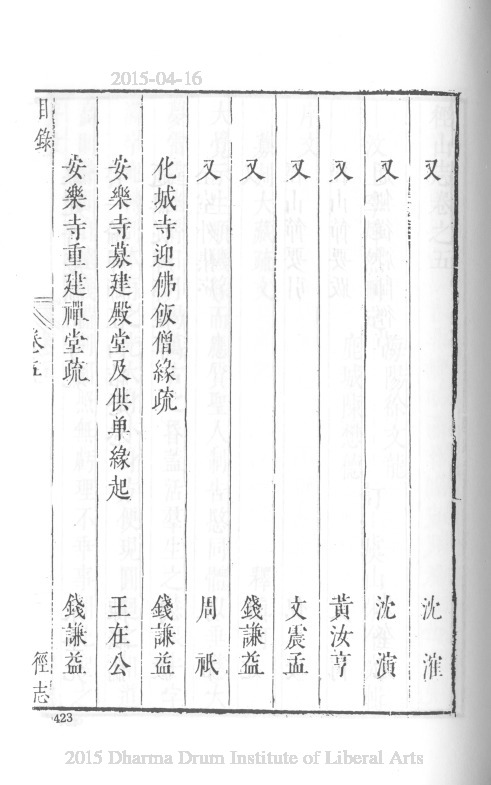 2015-04-16
又 沈㴶
又 沈演
又 黃汝亨
又 文震孟
又 錢謙益
又 周祇
化城寺迎佛飯僧緣疏 錢謙益
安樂寺募建殿堂及供单緣起 王在公
安樂寺重建禪堂疏 錢謙益
目錄 卷五 徑志
423
2015 Dharma Drum Institute of Liberal Arts